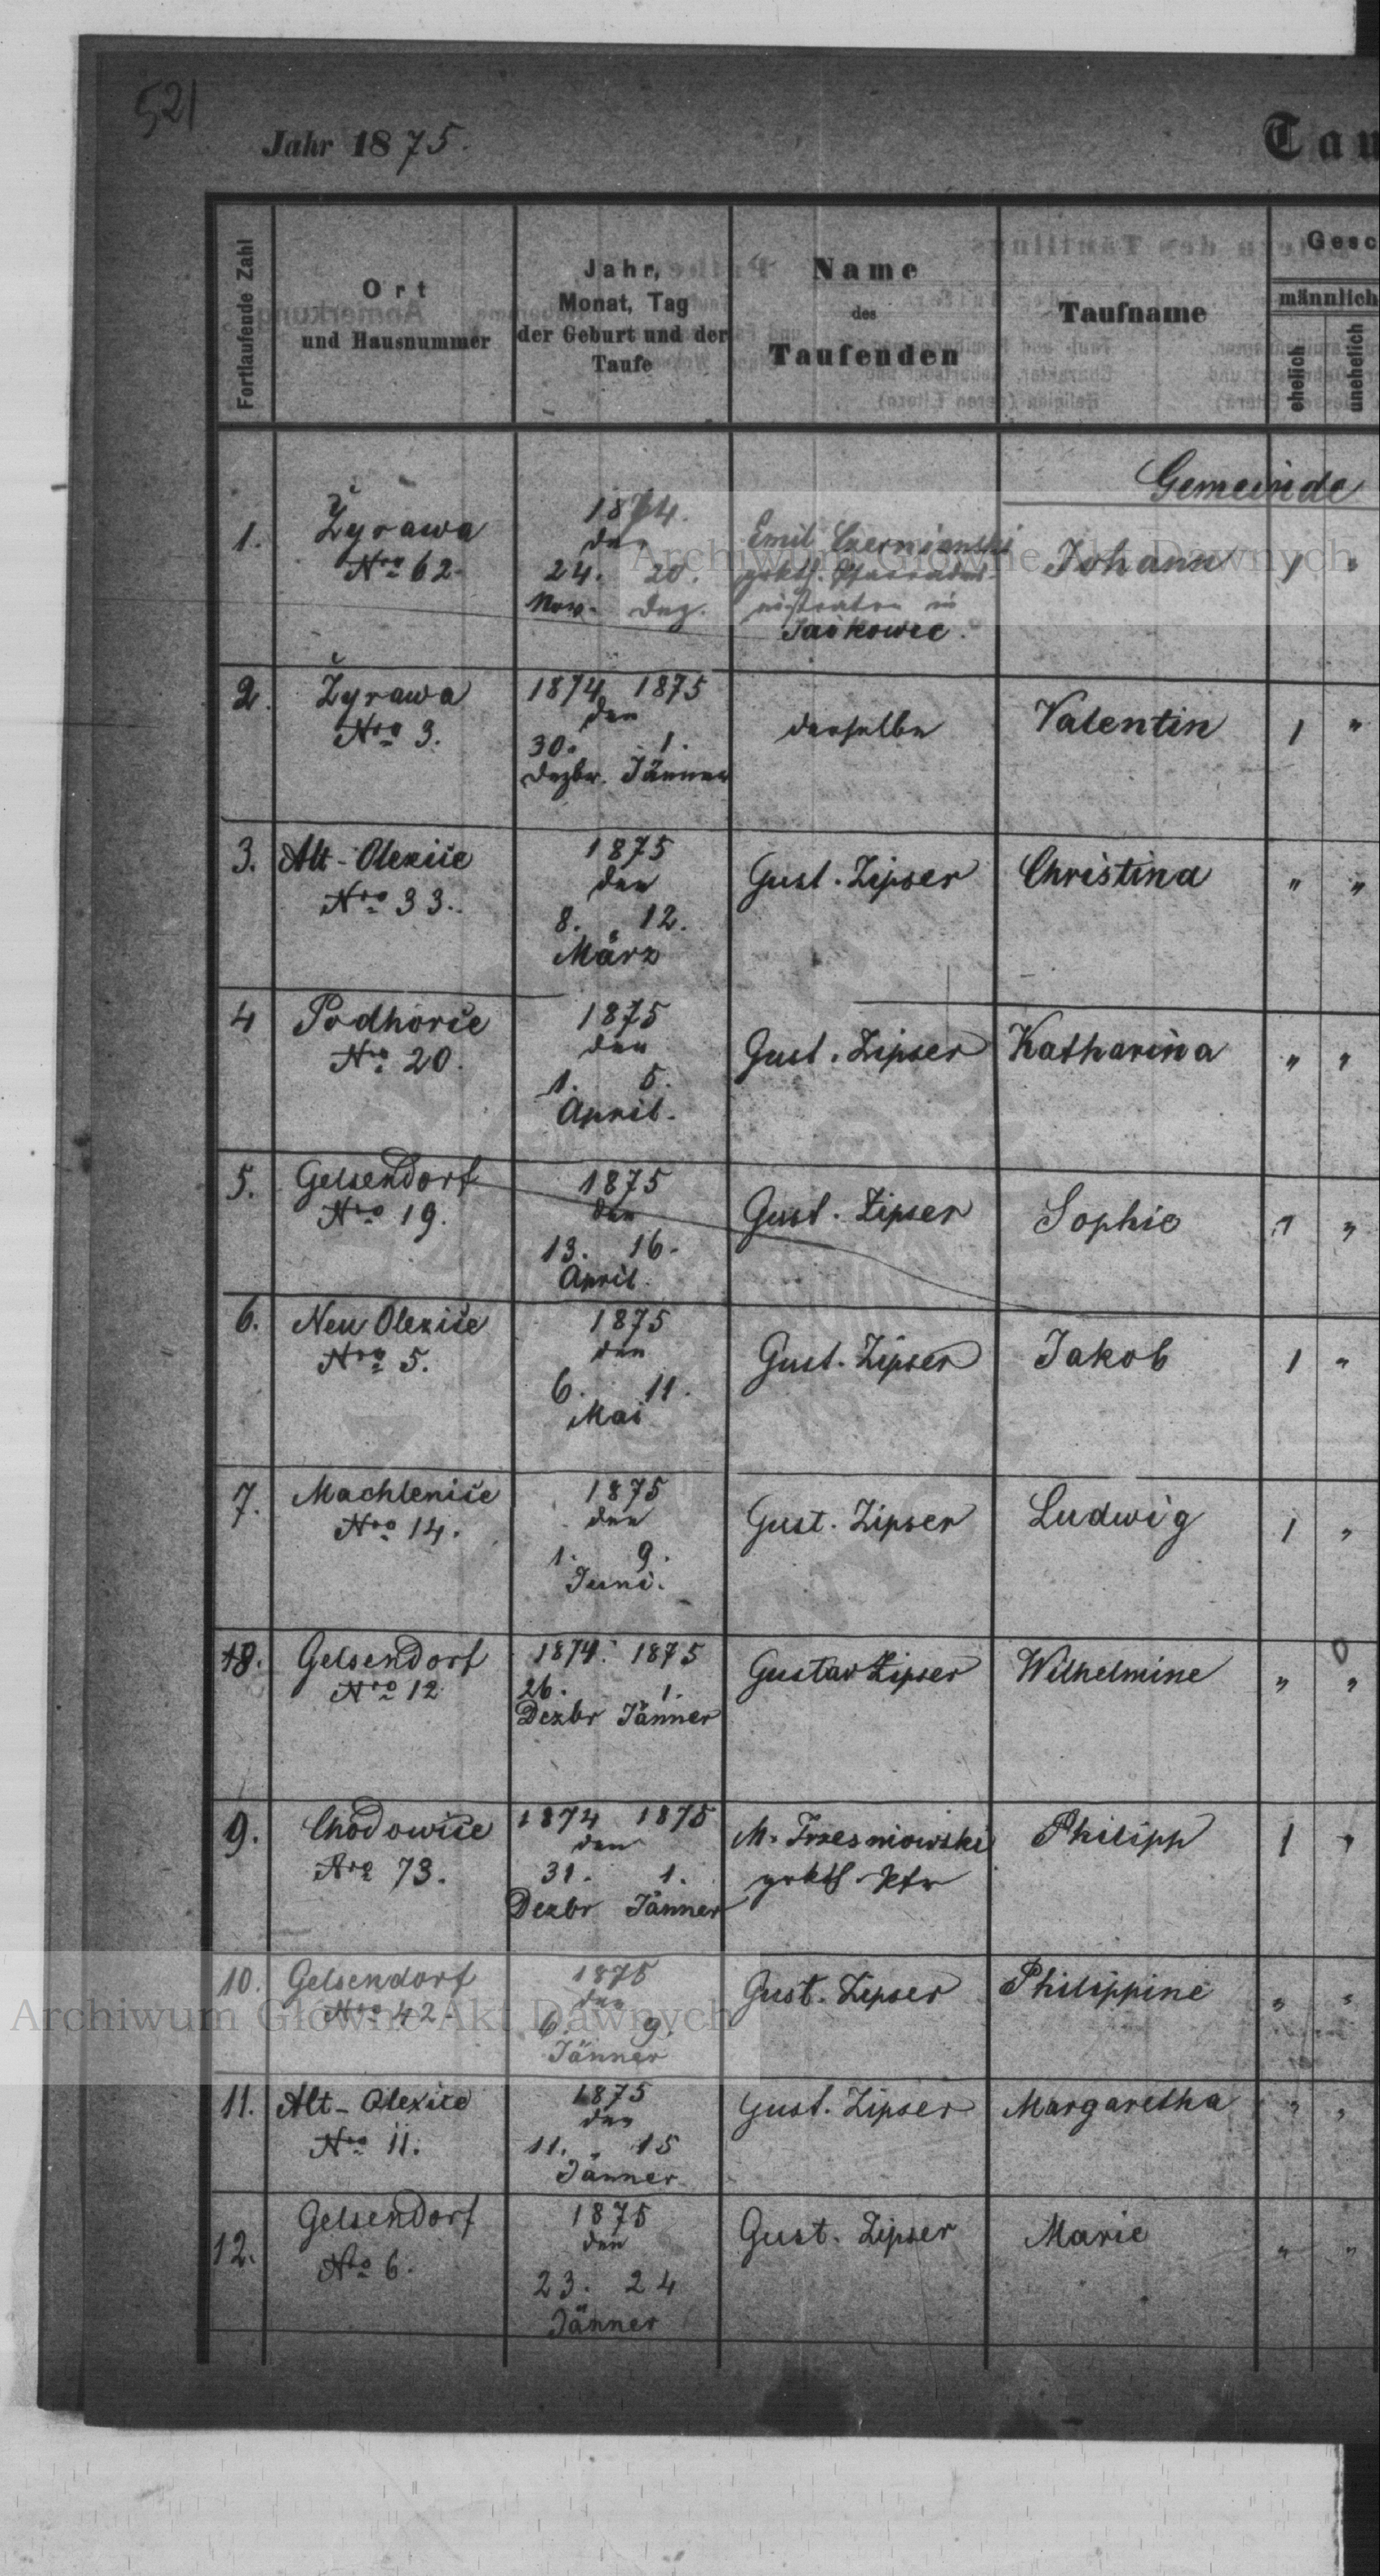 521
Jahr 1875.
Tau
Fortlaufende Zahl
Ort
und Hausnummer
Jahr,
Monat, Tag
der Geburt und der
Taufe
Name
des
Taufenden
Taufname
Gesc
männlich
ehelich
unehelich
Gemeinde
1.
Žyrawa
Nro 62.
1874.
den
24. 20.
Nov. Dez.
Emil Czernianski
grkth. Pfarradmi-
nistrator in
Jaskowce.
Johann
1 "
2.
Žyrawa
Nro 3.
1874 1875
den
30. 1.
Dezbr. Jänner
derselbe
Valentin
1 "
3.
Alt-Olexice
Nro 33.
1875
den
8. 12.
März
Gust. Zipser
Christina
" "
4
Podhorce
Nro 20.
1875
den
1. 5.
April.
Gust. Zipser
Katharina
" "
5.
Gelsendorf
Nro 19.
1875
den
13. 16.
April.
Gust. Zipser
Sophie
" "
6.
Neu Olexice
Nro 5.
1875
den
6. 11.
Mai
Gust. Zipser
Jakob
1 "
7.
Machlenice
Nro 14.
1875
den
1. 9.
Juni.
Gust. Zipser
Ludwig
1 "
8.
Gelsendorf
Nro 12
1874. 1875
26. 1.
Dezbr Jänner
Gustav Zipser
Wilhelmine
" "
9.
Chodowice
Nro 73.
1874 1875
den
31. 1.
Dezbr Jänner
M. Trzesniowski
grkth. Pfr
Philipp
1 "
10.
Gelsendorf
Nro 42.
1875
den
6. 9.
Jänner
Gust. Zipser
Philippine
" "
11.
Alt-Olexice
Nro 11.
1875
den
11. 15
Jänner
Gust. Zipser
Margaretha
" "
12.
Gelsendorf
Nro 6.
1875
den
23. 24
Jänner
Gust. Zipser
Marie
" "
Archiwum Główne Akt Dawnych
Archiwum Główne Akt Dawnych